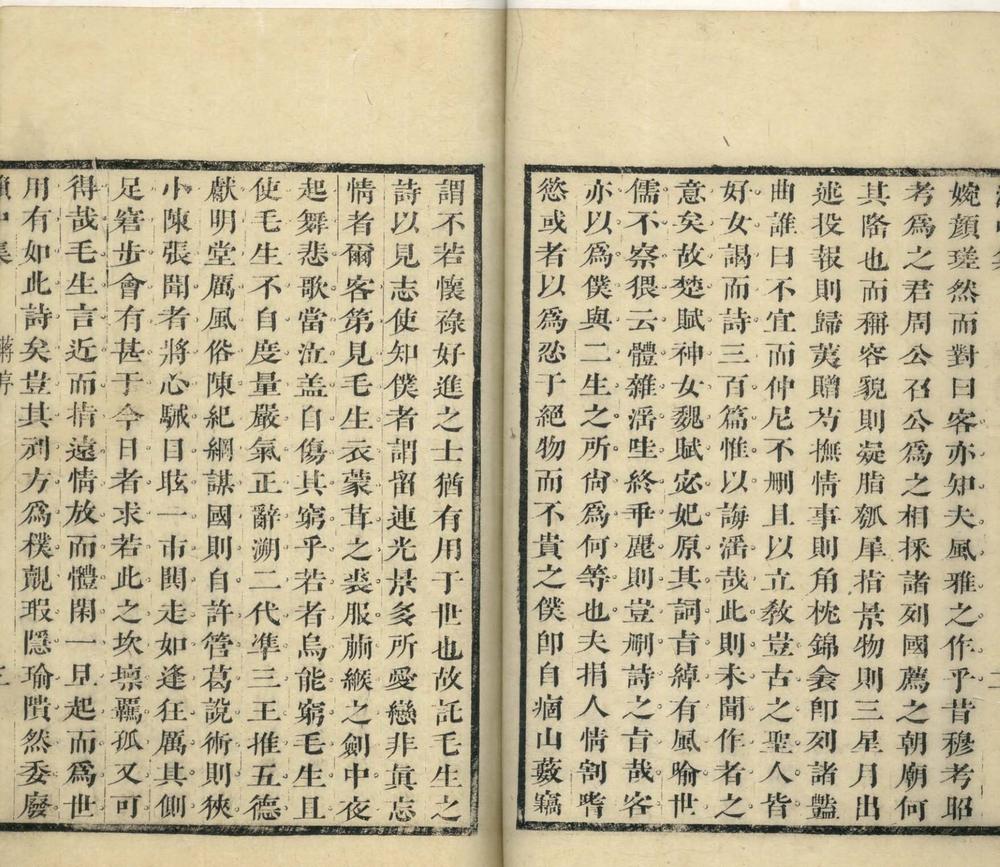 婉顏瑳然而對曰客亦知夫風雅之作乎昔穆考昭
考為之君周公召公為之相採諸列國薦之朝廟何
其隆也而稱容貌則凝脂瓠犀指景物則三星月出
述投報則歸荑贈芍撫情事則角枕錦衾卽刿諸豔
曲誰曰不宜而仲尼不刪且以立敎豈古之聖人皆
好女謁而詩三百篇惟以誨滛哉此則未聞作者之
意矣故楚賦神女魏賦宓妃原其詞旨綽有風喻世
儒不察猥云體雜滛哇終乖麗則豈刪詩之旨哉客
亦以為僕與二生之所尙為何等也夫捐人情割嗜
慾或者以為忍于絕物而不貴之僕卽自痼山藪竊
謂不若懷祿好進之士猶有用于世也故託毛生之
詩以見志使知僕者謂留連光景多所愛戀非眞忘
情者爾客第見毛生衣蒙茸之裘服蒯緱之劍中夜
起舞悲歌當泣盖自傷其窮乎若者烏能窮毛生且
使毛生不自度量嚴氣正辭溯二代準三王推五德
獻明堂厲風俗陳紀綱謀國則自許管葛說術則狹
小陳張聞者將心駴目眩一市閧走如逢狂厲其側
足窘步會有甚于今日者求若此之坎壈羈孤又可
得哉毛生言近而指遠情放而體閑一見起而為世
用有如此詩矣豈其刓方為樸覿瑕隱瑜隤然委廢